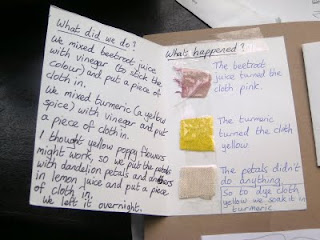 What did we do?
We mixed beetroot juice
with vinegar (to stick the
colour) and put a piece of
cloth in.
We mixed turmeric (a yellow
spice) with vinegar and put
a piece of cloth in.
I thought yellow poppy flowers
might work, so we put the petals
with dandelion petals and others
in lemon juice and put a piece
of cloth in.
We left it overnight.
What's happened?
The beetroot
juice turned the
cloth pink.
The turmeric
turned the cloth
yellow.
The petals didn't
do anything.
So to dye cloth
yellow we soak it in
turmeric